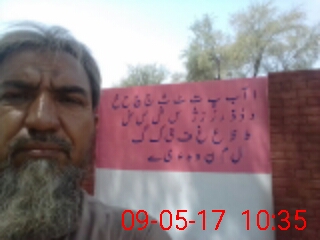 ا آ ب پ ت ٹ ث ج چ ح خ
د ڈ ذ ر ڑ ز ژ س ش ص ض
ط ظ ع غ ف ق ک گ
ل م ن و ہ ء ی ے
09-05-17 10:35